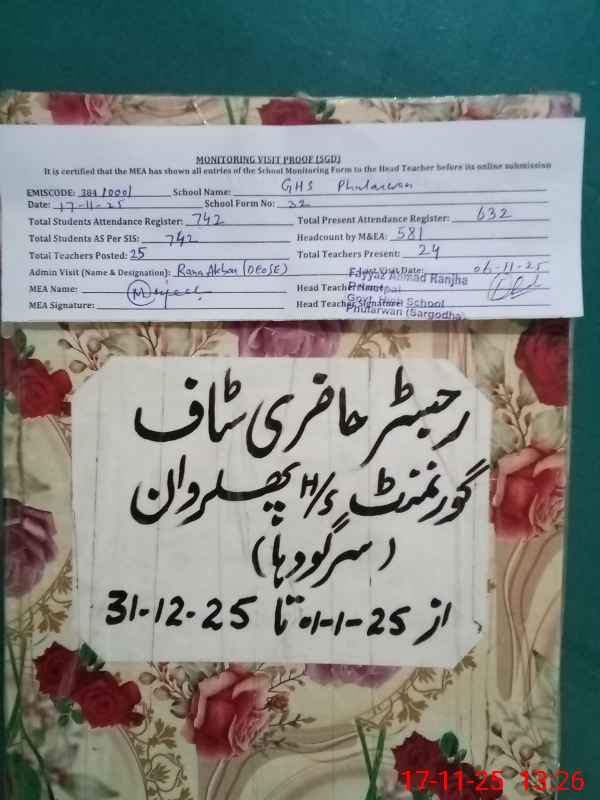 MONITORING VISIT PROOF (SGD)
It is certified that the MEA has shown all entries of the School Monitoring Form to the Head Teacher before its online submission
EMISCODE: 38410001 School Name: GHS Phularwan
Date: 17-11-25 School Form No: 32
Total Students Attendance Register: 742 Total Present Attendance Register: 632
Total Students AS Per SIS: 742 Headcount by M&EA: 581
Total Teachers Posted: 25 Total Teachers Present: 24
Admin Visit (Name & Designation): Rana Akbar (DEOSE) Last Visit Date: 06-11-25
MEA Name: Head Teacher Name
MEA Signature: Head Teacher Signature
Fayyaz Ahmad Ranjha
Principal
Govt. High School
Phularwan (Sargodha)
رجسٹر حاضری سٹاف
گورنمنٹ H/S پھلروان
(سرگودہا)
از 01-1-25 تا 31-12-25
17-11-25 13:26